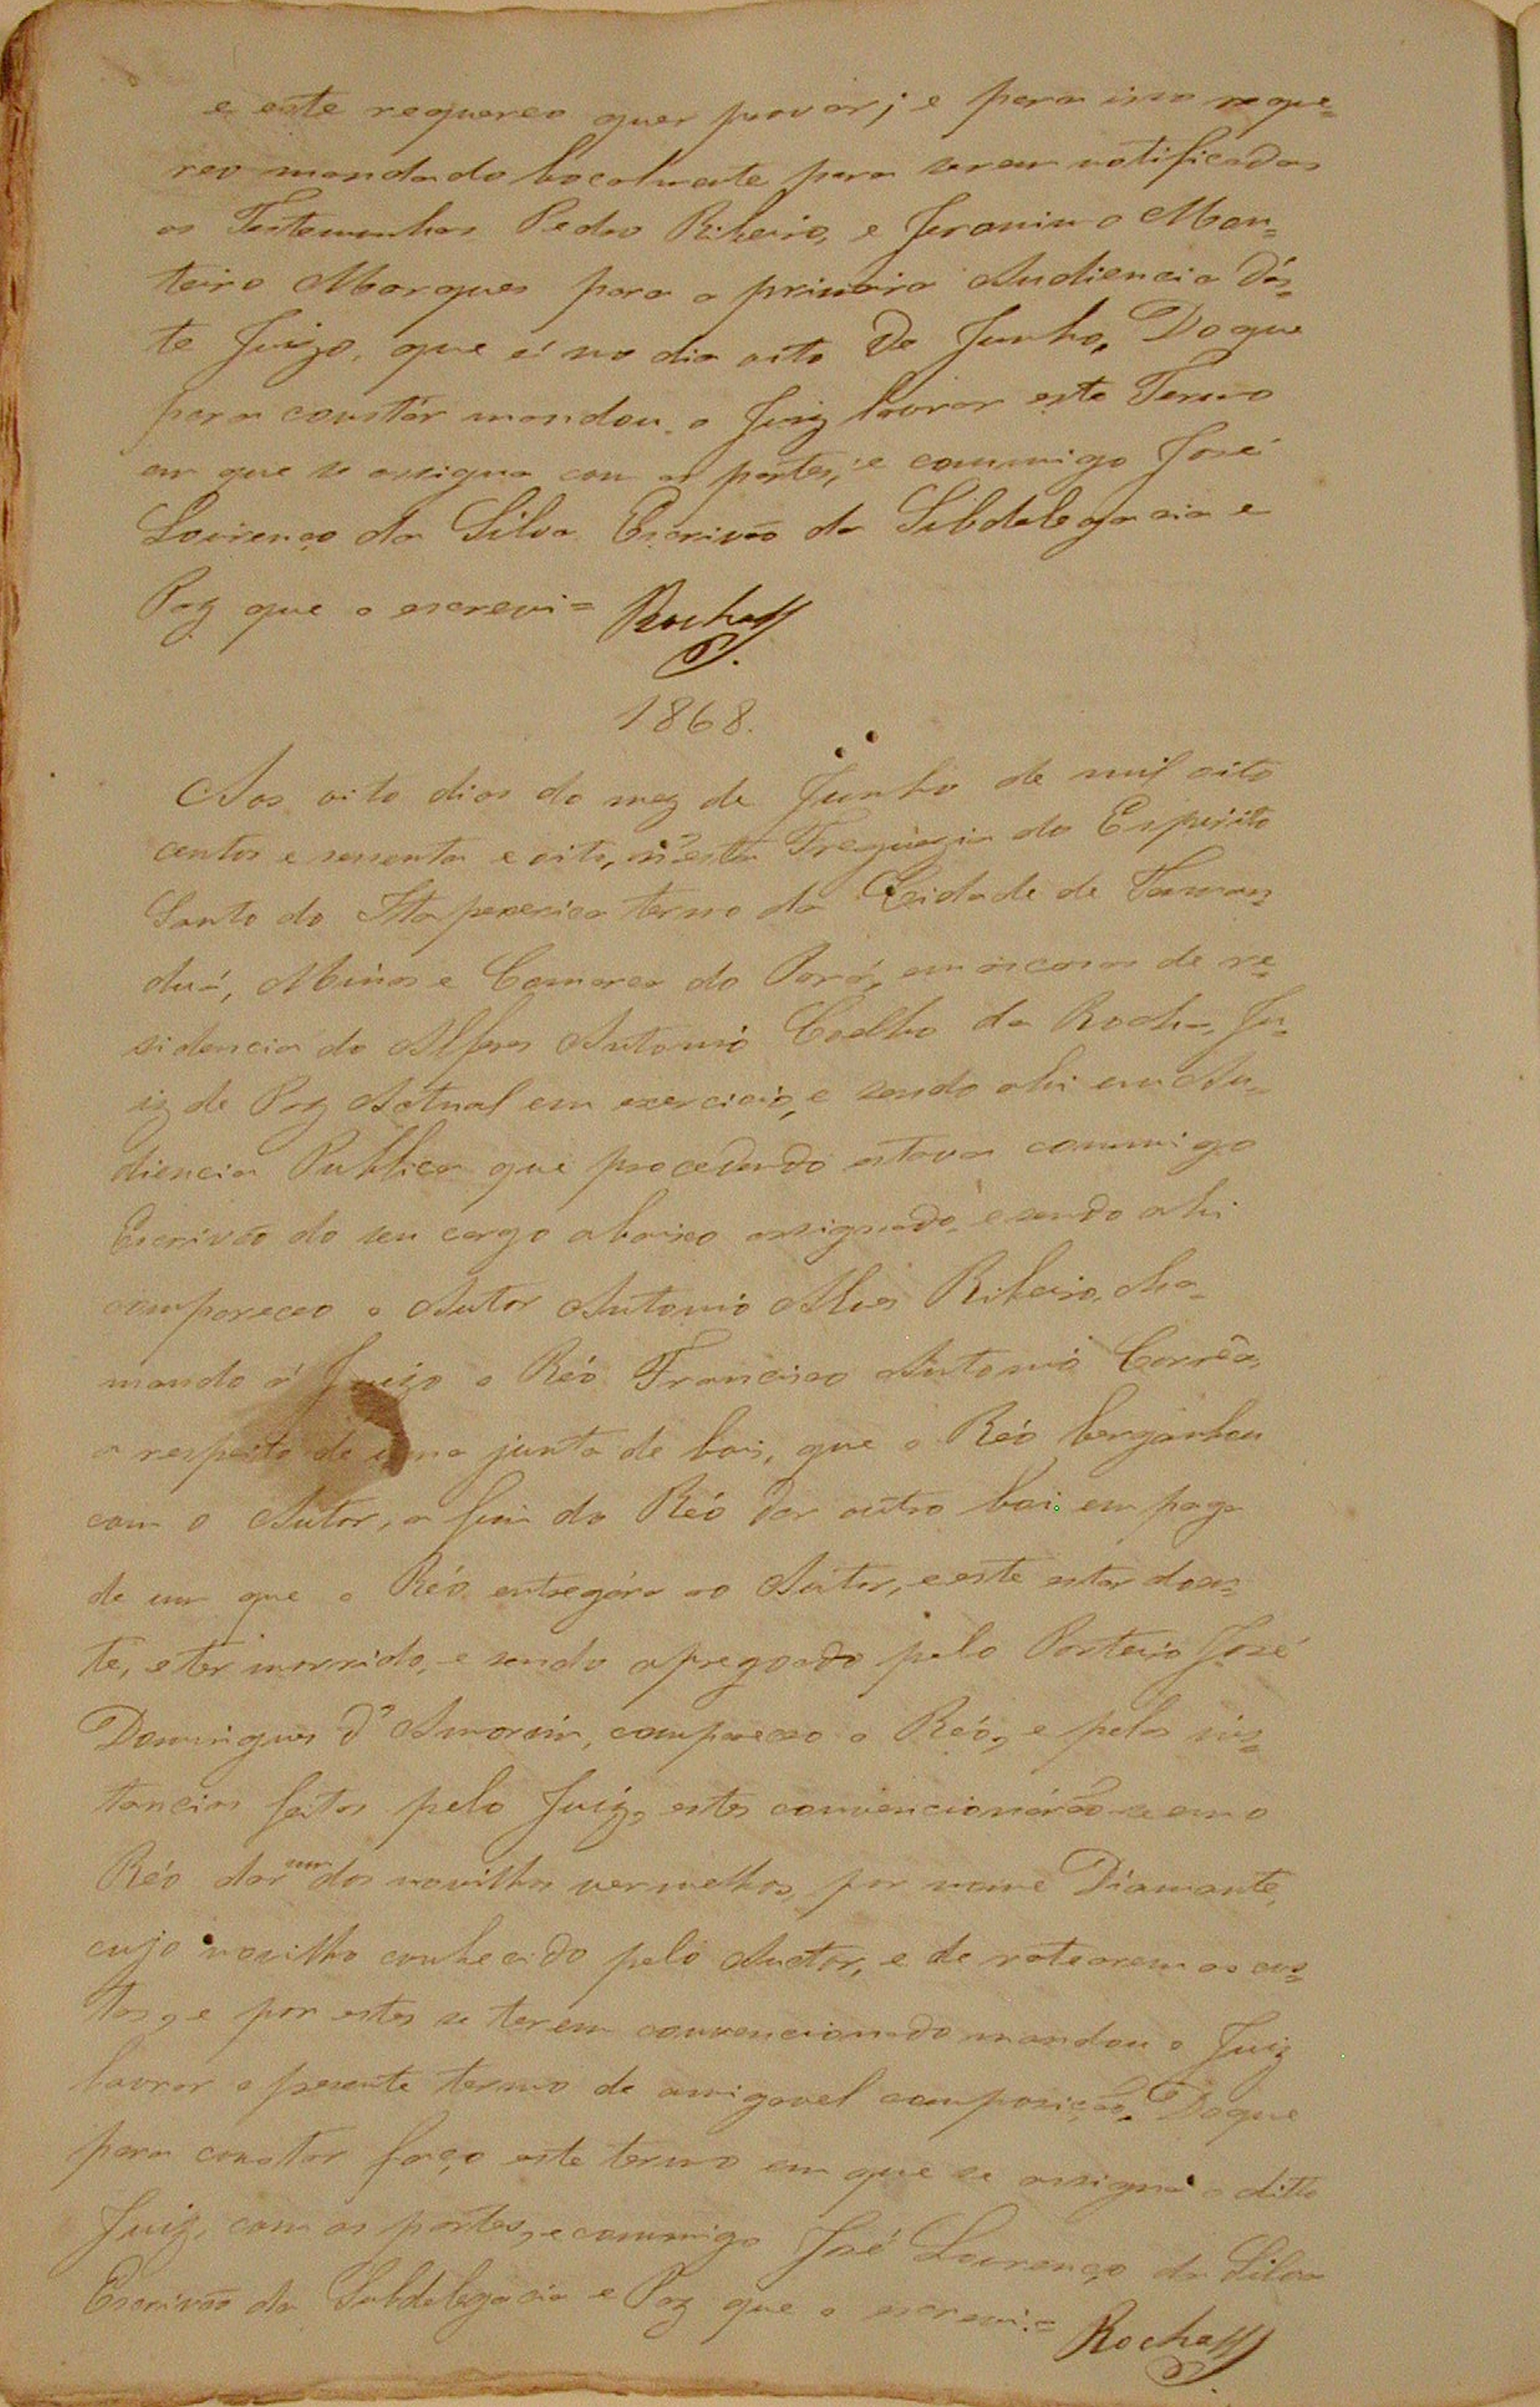 e este requereo quer provar; e para isso reque=
reo mandado bocalmente para serem notificadas
as Testemunhas Pedro Ribeiro, e Jeronimo Mon=
teiro Marques para a primeira Audiencia dés=
te Juizo, que é no dia oito de Junho, Do que
para constár mandou o Juiz lavrar este Termo
em que se assigna com as partes, e commigo José
Lourenço da Silva Escrivão da Subdelegacia e
Paz que o escrevi=
Rocha
1868.
Aos oito dias do mez de Junho de mil oito
centos e sessenta e oito, n'esta Freguezia do Espirito
Santo do Itapecerica termo da Cidade de Taman=
duá, Minas e Comarca do Pará, em as casas de re=
sidencia do Alferes Antonio Coelho da Rocha, Ju=
iz de Paz Actual em exercicio, e sendo ahi em Au=
diencia Publica que procedendo estava commigo
Escrivão do seu cargo abaixo assignado, e sendo ahi
compareceo o Autor Antonio Alves Ribeiro, cha=
mando á Juizo o Réo Francisco Antonio Corrêa,
a respeito de uma junta de bois, que o Réo berganhou
com o Autor, a fim do Réo dar outro boi em paga
de um que o Réo entregára ao Autor, e este estar doen=
te, e ter morrido, e sendo apregoado pelo Porteiro José
Domingues d'Amorim, compareceo o Réo, e pelas ins=
tancias feitas pelo Juiz, estes convencionárão-se em o
Réo dar um dos novilhos vermelhos, por nome Diamante,
cujo novilho conhecido pelo Auctor, e de ratearem as cus=
tas, e por estes se terem convencionado mandou o Juiz
lavrar o presente termo de amigavel composição. Do que
para constar faço este termo em que se assigna o ditto
Juiz, com as partes, e commigo José Lourenço da Silva
Escrivão da Subdelegacia e Paz que o escrevi.=
Rocha